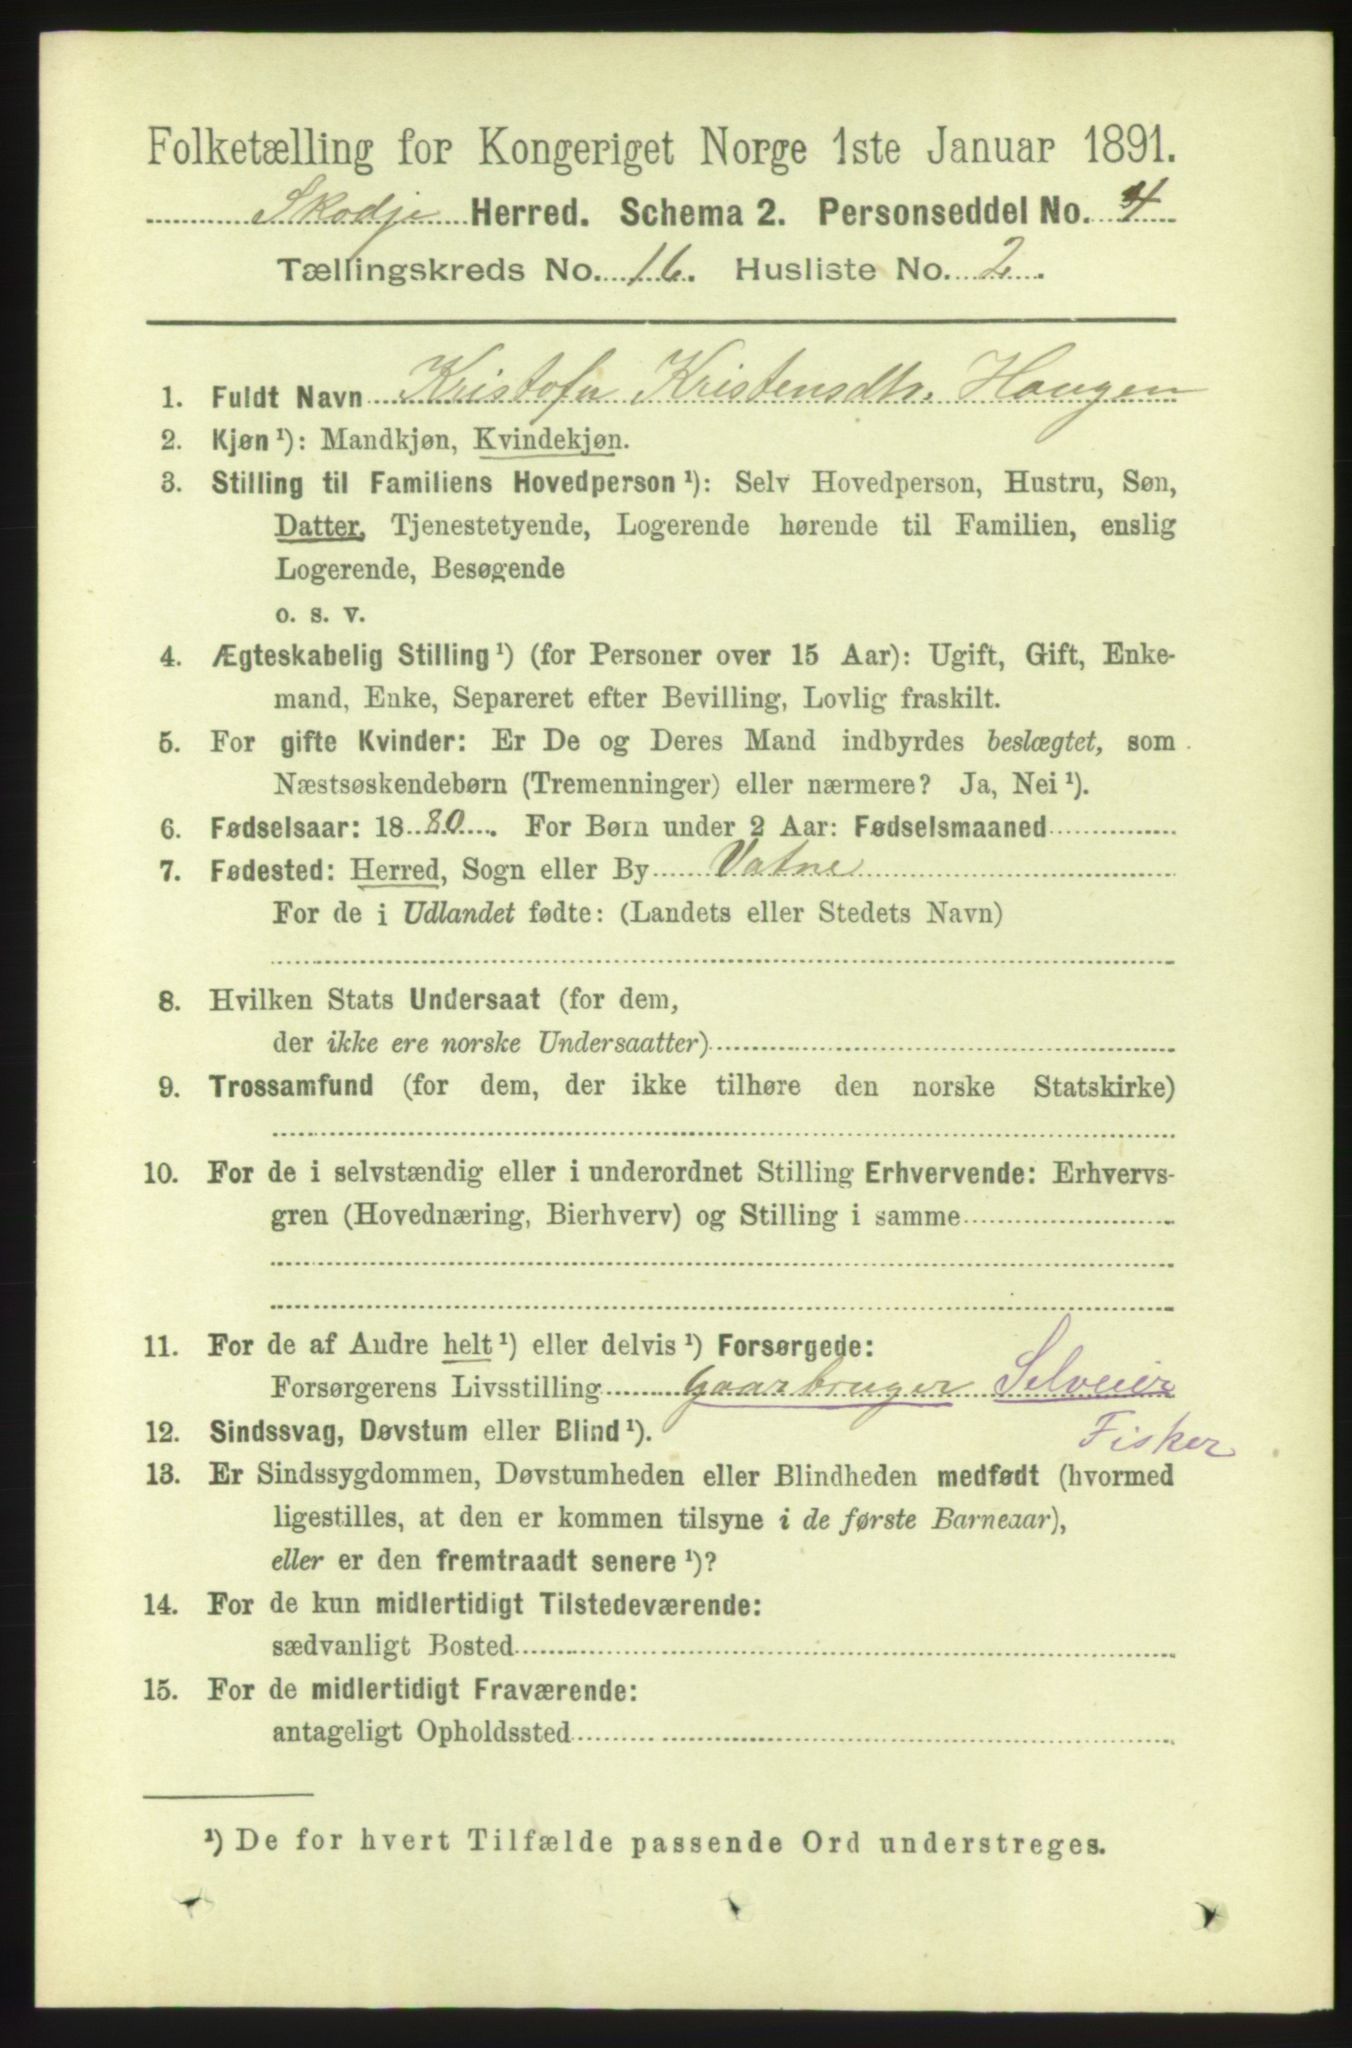 Folketælling for Kongeriget Norge 1ste Januar 1891.
Skodje Herred. Schema 2. Personseddel No. 4
Tællingskreds No. 16. Husliste No. 2.
1. Fuldt Navn Kristofa Kristensdtr. Haugen
2. Kjøn ¹): Mandkjøn, Kvindekjøn.
3. Stilling til Familiens Hovedperson ¹): Selv Hovedperson, Hustru, Søn,
Datter, Tjenestetyende, Logerende hørende til Familien, enslig
Logerende, Besøgende
o. s. v.
4. Ægteskabelig Stilling ¹) (for Personer over 15 Aar): Ugift, Gift, Enke-
mand, Enke, Separeret efter Bevilling, Lovlig fraskilt.
5. For gifte Kvinder: Er De og Deres Mand indbyrdes beslægtet, som
Næstsøskendebørn (Tremenninger) eller nærmere? Ja, Nei ¹).
6. Fødselsaar: 1880. For Børn under 2 Aar: Fødselsmaaned
7. Fødested: Herred, Sogn eller By Vatne
For de i Udlandet fødte: (Landets eller Stedets Navn)
8. Hvilken Stats Undersaat (for dem,
der ikke ere norske Undersaatter)
9. Trossamfund (for dem, der ikke tilhøre den norske Statskirke)
10. For de i selvstændig eller i underordnet Stilling Erhvervende: Erhvervs-
gren (Hovednæring, Bierhverv) og Stilling i samme
11. For de af Andre helt ¹) eller delvis ¹) Forsørgede:
Forsørgerens Livsstilling Gaarbruger Selveier
Fisker
12. Sindssvag, Døvstum eller Blind ¹).
13. Er Sindssygdommen, Døvstumheden eller Blindheden medfødt (hvormed
ligestilles, at den er kommen tilsyne i de første Barneaar),
eller er den fremtraadt senere ¹)?
14. For de kun midlertidigt Tilstedeværende:
sædvanligt Bosted
15. For de midlertidigt Fraværende:
antageligt Opholdssted
¹) De for hvert Tilfælde passende Ord understreges.